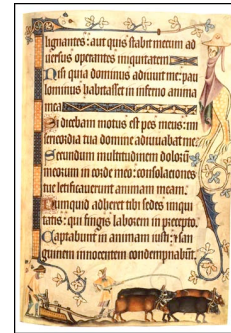 lignantes: aut quis stabit mecum ad
uersus operantes iniquitatem
Nisi quia dominus adiuuit me: pau
lominus habitasset in inferno anima
mea
Si dicebam motus est pes meus: mi
sericordia tua domine adiuuabat me.
Secundum multitudinem dolorum
meorum in corde meo: consolaciones
tue letificauerunt animam meam.
Numquid adheret tibi sedes iniqui
tatis: qui fingis laborem in precepto.
Captabunt in animam iusti: et san
guinem innocentem condempnabunt.